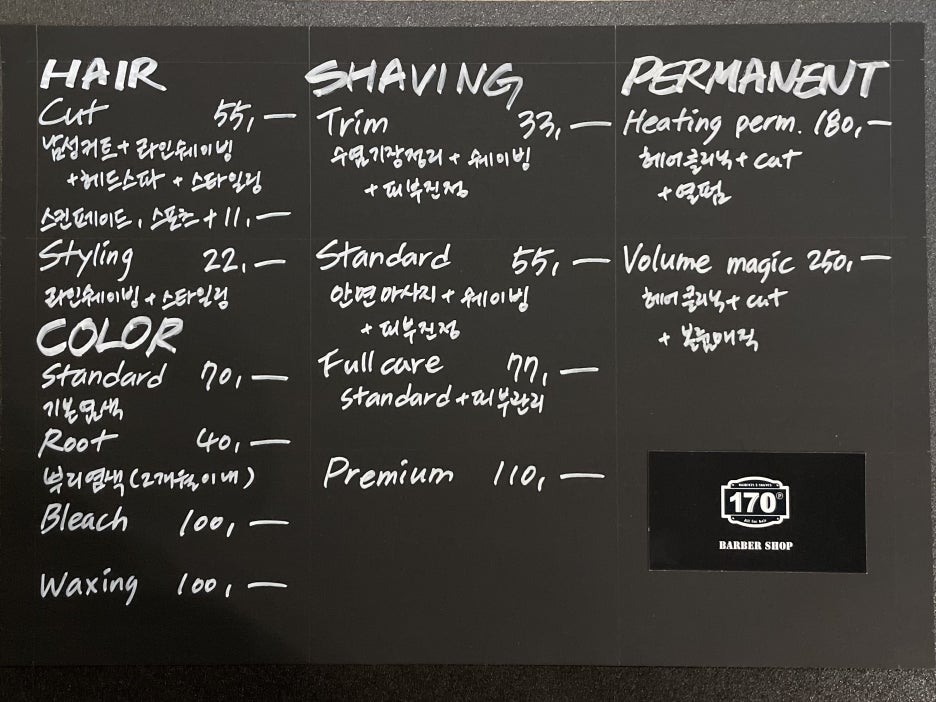 HAIR
Cut 55,—
남성커트+라인쉐이빙
+헤드스파 + 스타일링
스킨페이드, 스포츠 + 11,—
Styling 22,—
라인쉐이빙 + 스타일링
COLOR
Standard 70,—
기본염색
Root 40,—
뿌리염색(2개월이내)
Bleach 100,—
Waxing 100,—
SHAVING
Trim 33,—
수염기장정리 + 쉐이빙
+ 피부진정
Standard 55,—
안면마사지 + 쉐이빙
+ 피부진정
Full care 77,—
Standard + 피부관리
Premium 110,—
PERMANENT
Heating perm. 180,—
헤어클리닉 + cut
+ 열펌
Volume magic 250,—
헤어클리닉 + cut
+ 볼륨매직
170
BARBER SHOP